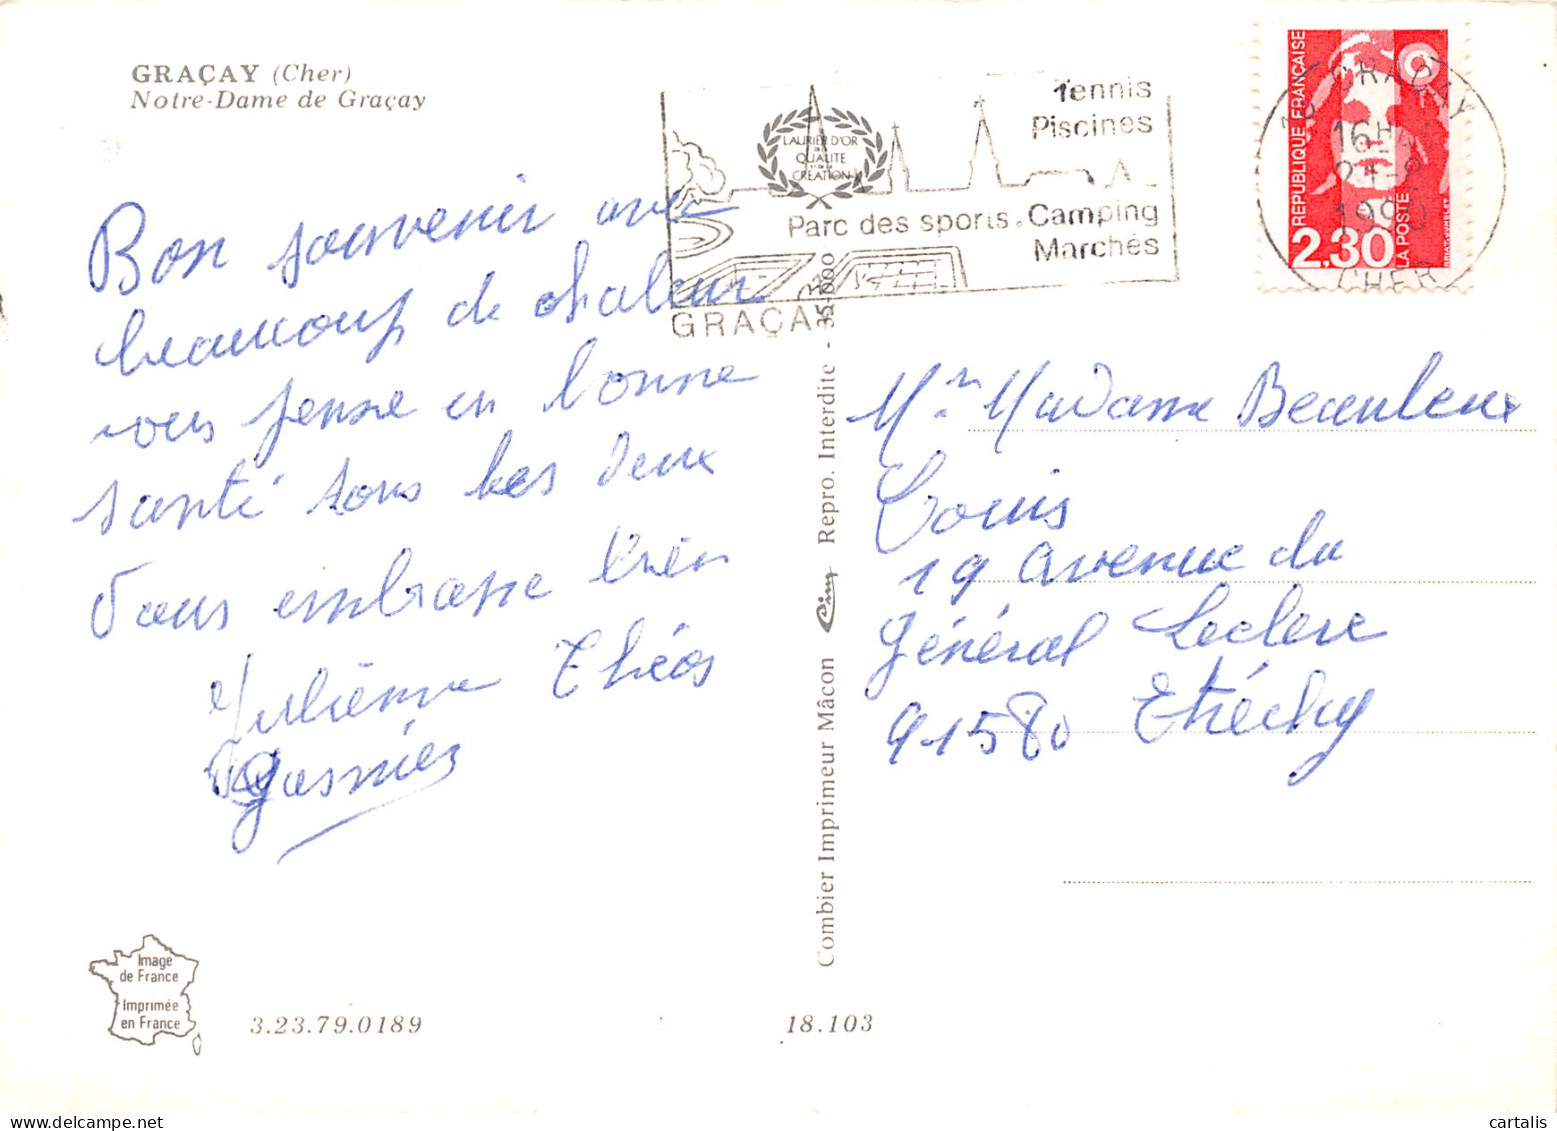 GRAÇAY (Cher)
Notre-Dame de Graçay
Bon souvenir avec
beaucoup de chaleur
vous pense en bonne
santé tous les deux
Vous embrasse bien
Julienne Théos
Gasnier
Image
de France
Imprimée
en France
3.23.79.0189
18.103
Combier Imprimeur Mâcon Cim Repro. Interdite - 35-000
LAURIER D'OR
QUALITE
CREATION
Tennis
Piscines
Parc des sports. Camping
Marchés
GRAÇAY
REPUBLIQUE FRANÇAISE
2,30
LA POSTE
18 GRAÇAY
16H
1990
CHER
Mr Madame
Louis
19 avenue du
Général Leclerc
91580 Etréchy
cartalis